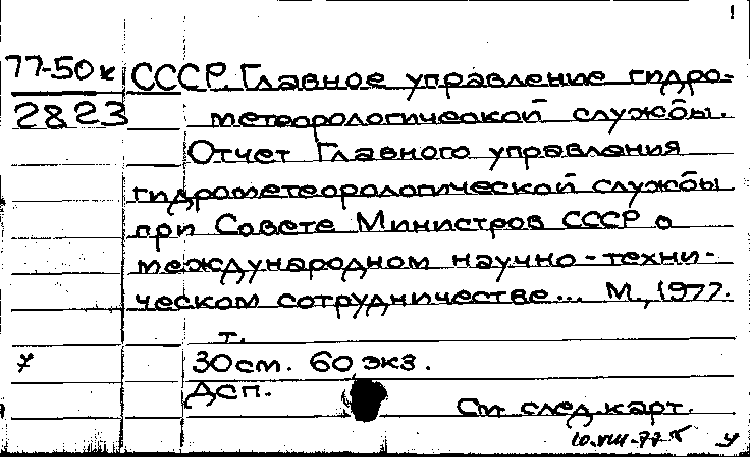 1
77-50к СССР. Главное управление гидро-
2823 метеорологической службы.
Отчет Главного управления
гидрометеорологической службы
при Совете Министров СССР о
международном научно-техни-
ческом сотрудничестве... М., 1977.
т.
30см. 60 экз.
ДСП.
См. след. карт.
10.VIII-77